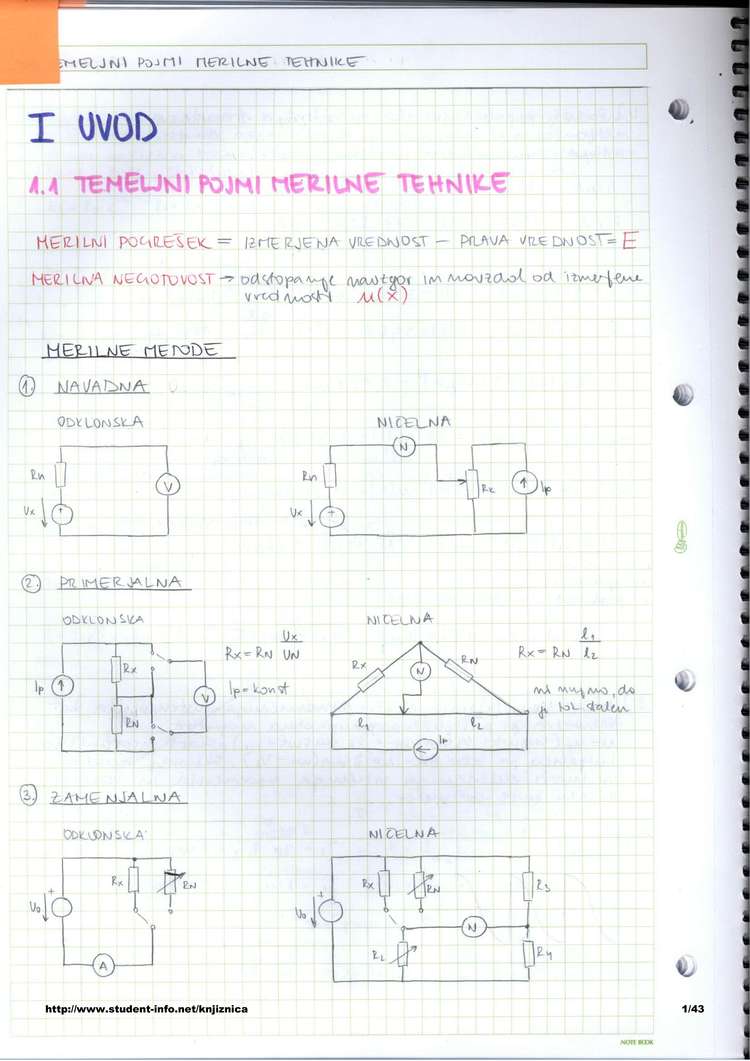 TEMELJNI POJMI MERILNE TEHNIKE
I UVOD
1.1 TEMELJNI POJMI MERILNE TEHNIKE
MERILNI POGREŠEK = IZMERJENA VREDNOST - PRAVA VREDNOST = E
MERILNA NEGOTOVOST → odstopanje navzgor in navzdol od izmerjene
vrednosti u(x)
MERILNE METODE
1. NAVADNA
ODKLONSKA NIČELNA
Rn V Ux
N Rn Rk Ip Ux
2. PRIMERJALNA
ODKLONSKA NIČELNA
Ip Rx RN V
Rx = RN Ux/UN
Ip = konst
Rx N RN l1 l2 Ip
Rx = RN l1/l2
ni nujno, da
je tok stalen
3. ZAMENJALNA
ODKLONSKA NIČELNA
U0 + Rx RN A
U0 + Rx RN R3 N R2 R4
http://www.student-info.net/knjiznica 1/43
NOTE BOOK